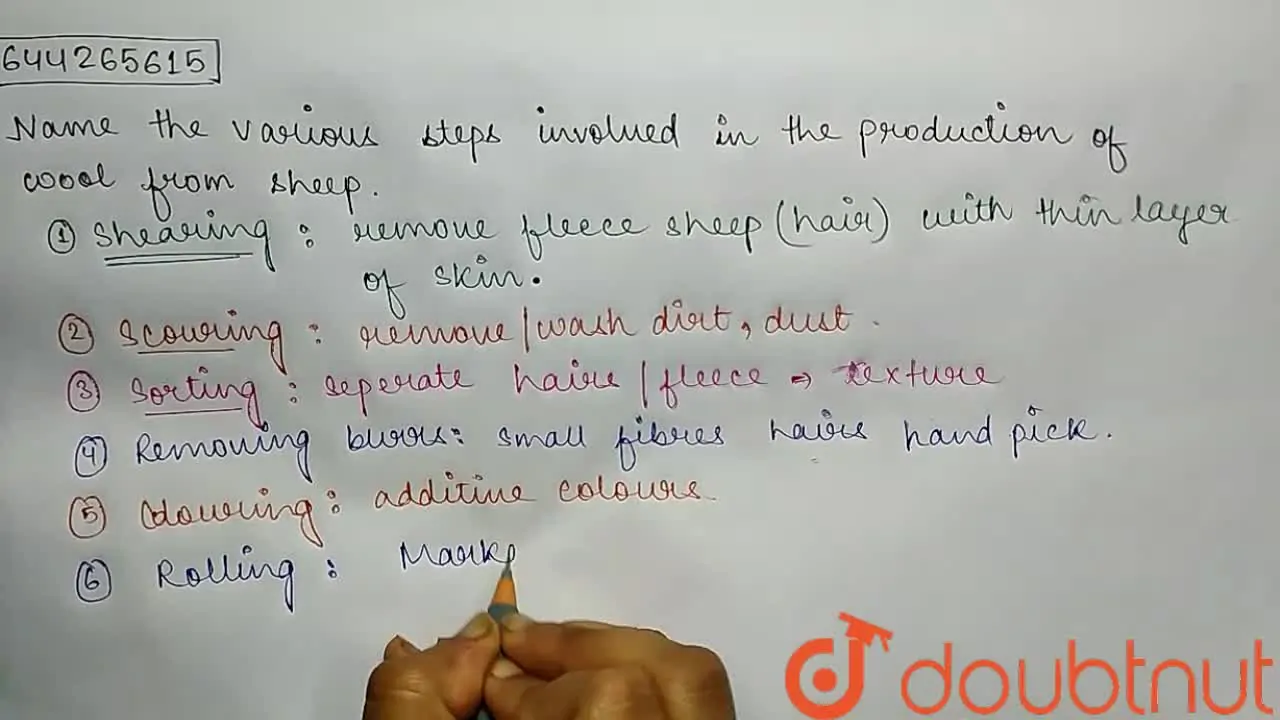 644265615
Name the various steps involued in the production of
wool from sheep.
① Shearing : remove fleece sheep (hair) with thin layer
of skin.
② Scouring : remove/wash dirt, dust.
③ Sorting : seperate hairs/fleece → texture
④ Removing burrs: small fibres hairs hand pick.
⑤ Colouring : additive colours.
⑥ Rolling : Marke
doubtnut